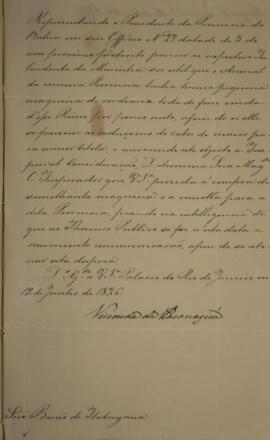 Representando o Presidente da Provincia da
Bahia em seu Officio Nº 27 datado de 3 do
mez proximo preterito parecer ao respectivo In-
tendente da Marinha ser util que o Arsenal
da mesma Provincia tenha huma pequena
maquina de cordoaria toda de ferro vinda
d'esse Reino por pouco custo, afim de n'ella
se fazerem as reducçoens de cabos de maior pa-
ra menor bitola: e merecendo este objecto a Im-
perial Consideração, Determina Sua Magde
O Imperador que V. Sª proceda á compra de
semelhante maquina e a remetta para a
dita Provincia, ficando na intelligencia de
que ao Thesouro Publico se fez n'esta data a
conveniente communicação, afim de se abo-
nar esta despeza.
Ds Gde a V. Sª Palacio do Rio de Janeiro em
12 de Junho de 1826.
Visconde de Paranaguá
Snr Barão de Itabayana.